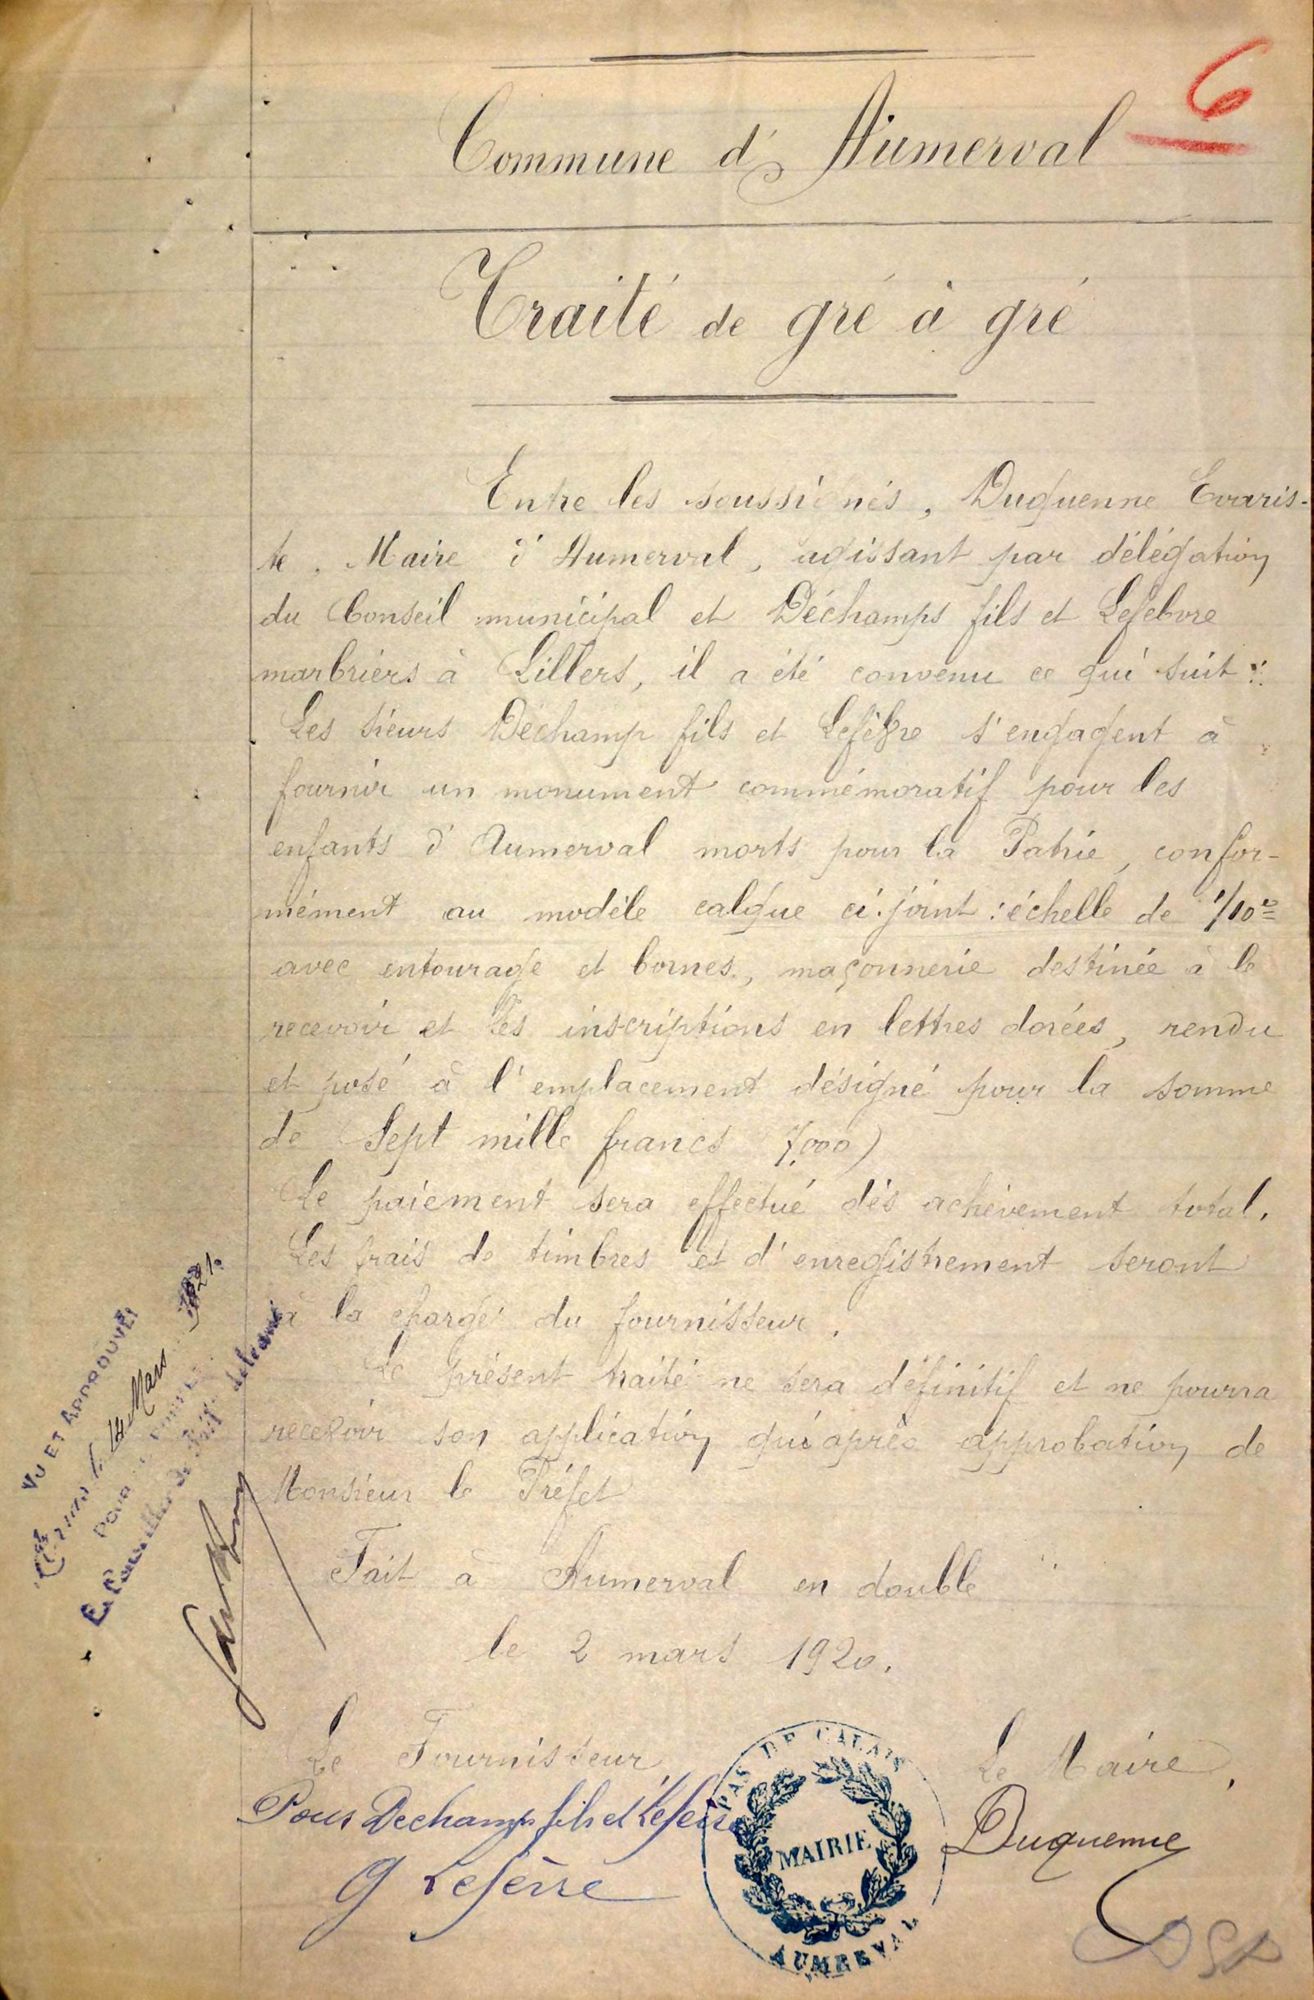 6
Commune d'Aumerval
Traité de gré à gré
Entre les soussignés, Duquenne Evaris-
te, Maire d'Aumerval, agissant par délégation
du Conseil municipal et Déchamps fils et Lefebvre
marbriers à Lillers, il a été convenu ce qui suit :
Les sieurs Déchamp fils et Lefèbre s'engagent à
fournir un monument commémoratif pour les
enfants d'Aumerval morts pour la Patrie, confor-
mément au modèle calque ci-joint : échelle de 1/10e
avec entourage et bornes, maçonnerie destinée à le
recevoir et les inscriptions en lettres dorées, rendu
et posé à l'emplacement désigné pour la somme
de Sept mille francs 7.000)
Le paiement sera effectué dès achèvement total.
Les frais de timbres et d'enregistrement seront
à la charge du fournisseur.
Le présent traité ne sera définitif et ne pourra
recevoir son application qu'après approbation de
Monsieur le Préfet
Fait à Aumerval en double
le 2 mars 1920.
VU ET APPROUVÉ
le 14 Mars 1921
POUR
Le Conseiller de Préf. délégué
Le Fournisseur,
Pour Dechamps fils et Lefèvre
G Lefèvre
PAS DE CALAIS
MAIRIE
AUMERVAL
Le Maire,
Duquenne